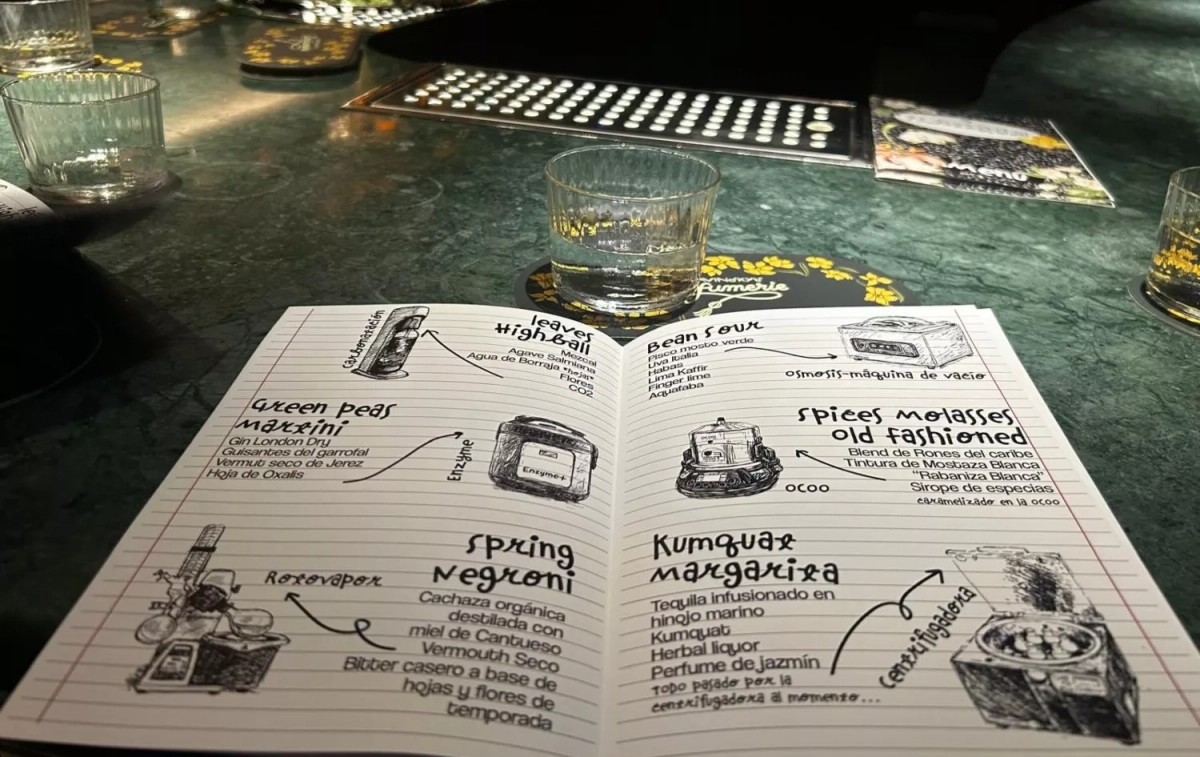 fumerie
Menu
Carbonatación
leaves
Highball
Mezcal
Agave Salmiana
Agua de Borraja *hojas*
Flores
CO2
Green peas
Martini
Gin London Dry
Guisantes del garrofal
Vermut seco de Jerez
Hoja de Oxalis
Enzyme
Enzyme+
Rotovapor
Spring
Negroni
Cachaza orgánica
destilada con
miel de Cantueso
Vermouth Seco
Bitter casero a base de
hojas y flores de
temporada
Bean Sour
Pisco mosto verde
Uva Italia
Habas
Lima Kaffir
Finger lime
Aquafaba
osmosis-máquina de vacío
Spices Molasses
Old fashioned
Blend de Rones del caribe
Tintura de Mostaza Blanca
"Rabaniza Blanca"
Sirope de especias
caramelizado en la ocoo
OCOO
Kumquat
Margarita
Tequila infusionado en
hinojo marino
Kumquat
Herbal liquor
Perfume de jazmín
Todo pasado por la
centrifugadora al momento...
Centrifugadora